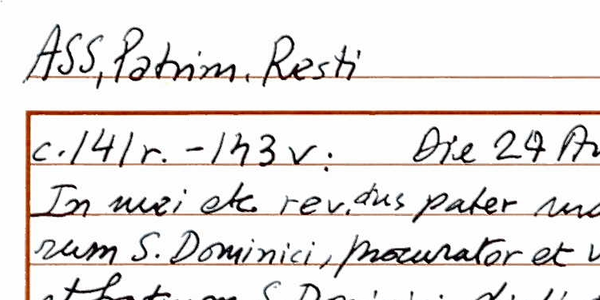 ASS, Patrim. Resti
c. 141 r. - 143 v: Die 24
In mei etc. rev.dus pater
rum S. Dominici, procurator et
S. Dominici